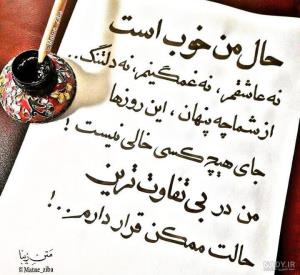 حال من خوب است
نه عاشقم، نه غمگینم، نه دلتنگ...
از شما چه پنهان، این روزها
جای هیچ کسی خالی نیست!
من در بی تفاوت ترین
حالت ممکن قرار دارم...!
متن زیبا
@Matne_ziba